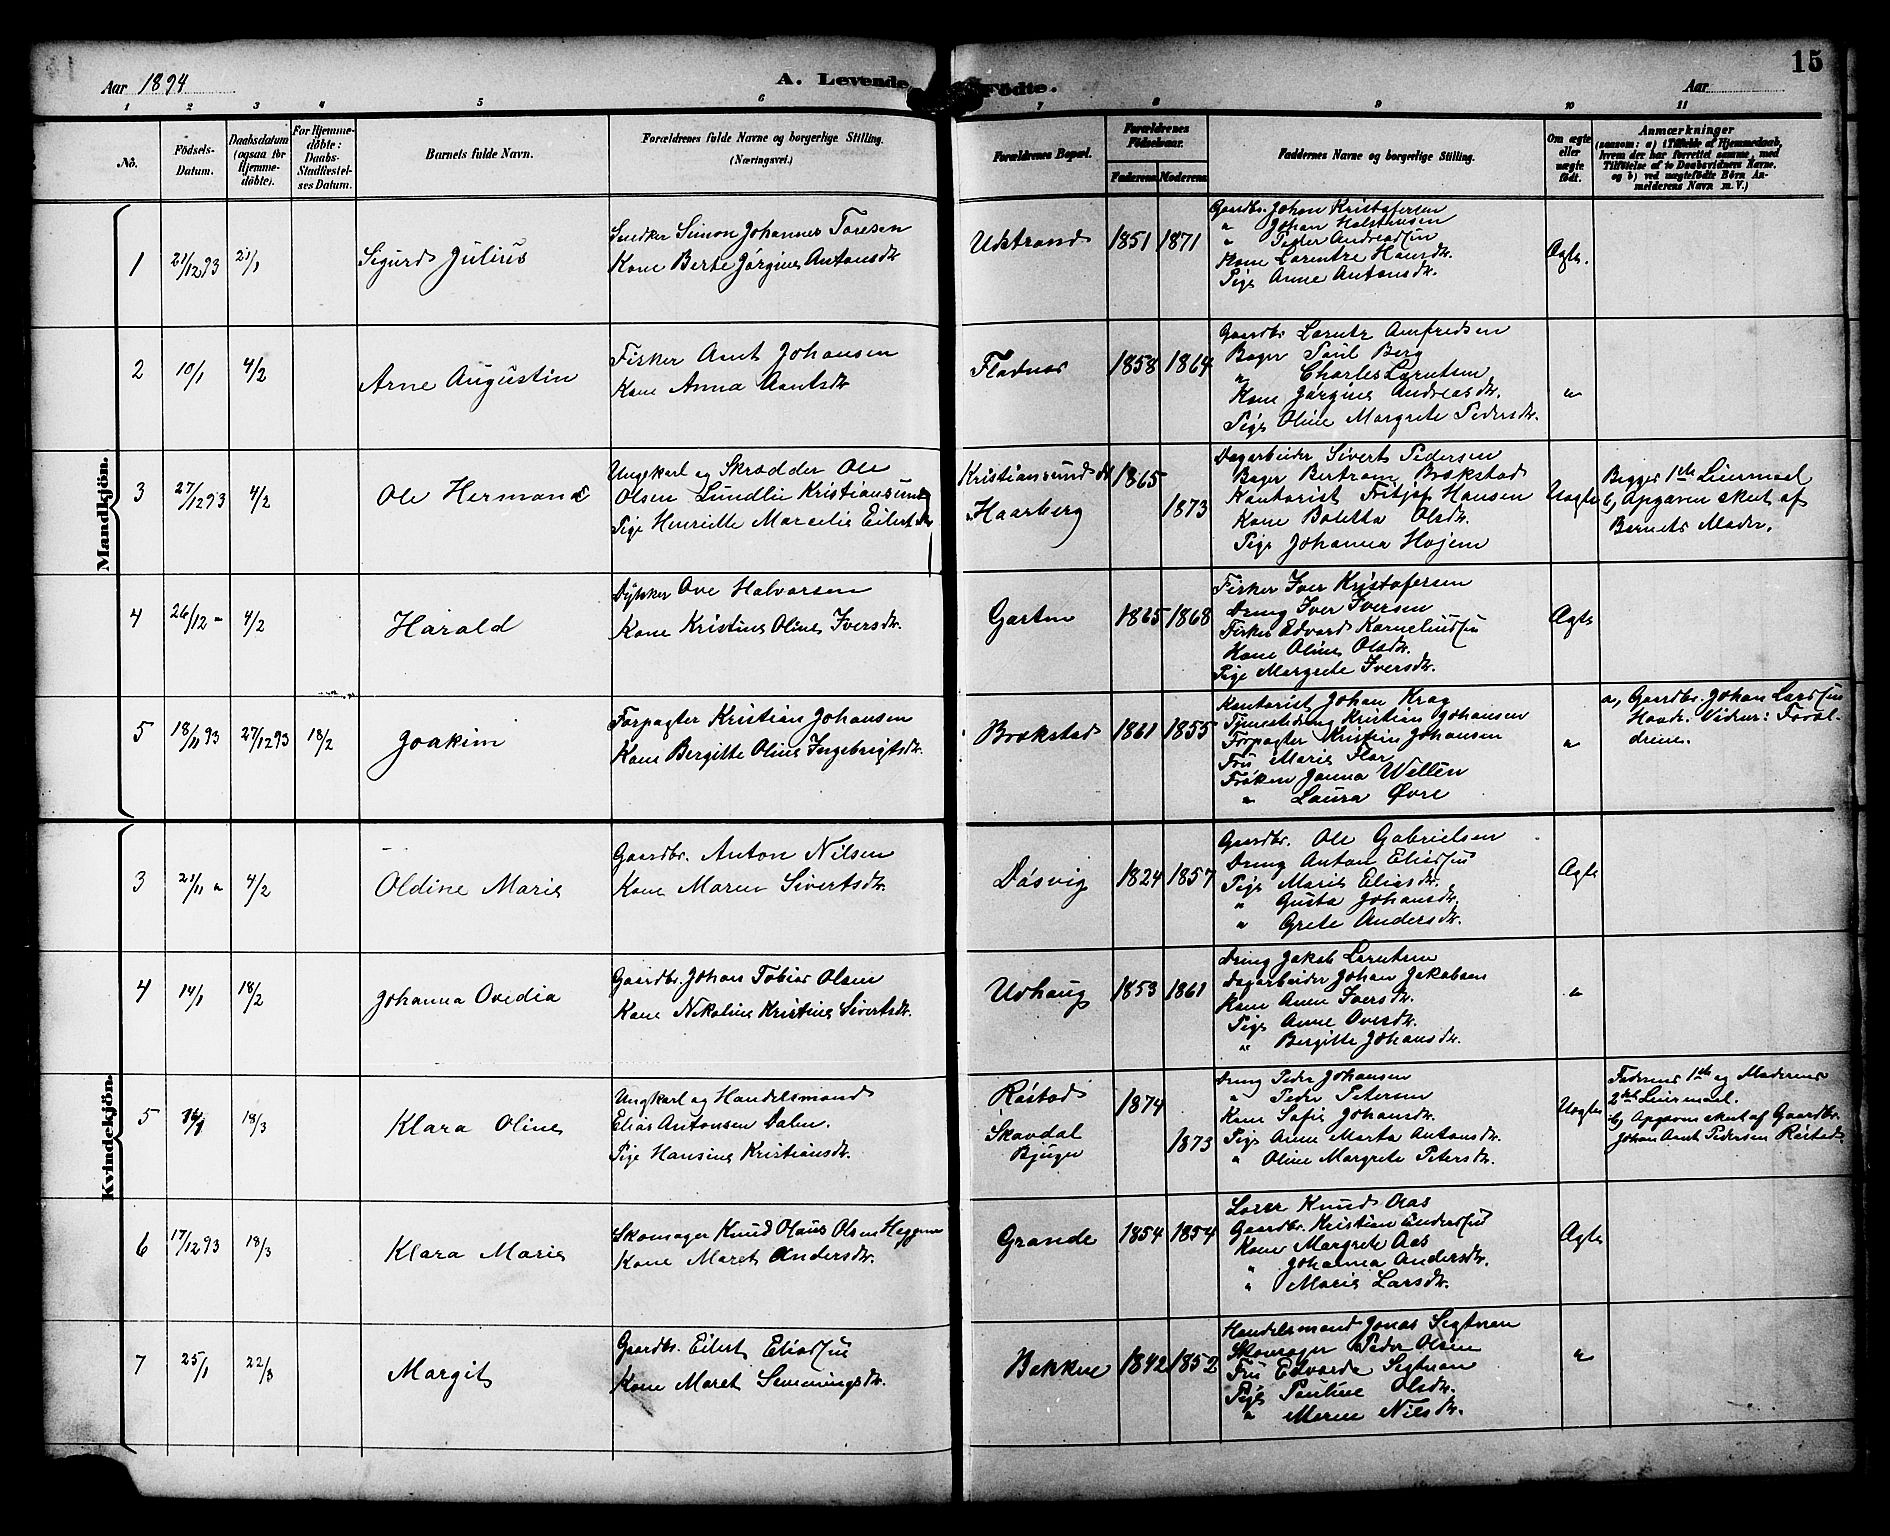 15
Aar 1894
A. Levende Fødte.
Aar
1 2 3 4 5 6 7 8 9 10 11
No.
Fødsels-Datum.
Daabsdatum (ogsaa for Hjemmedøbte).
For Hjemmedøbte: Daabs-Stadfæstelses Datum.
Barnets fulde Navn.
Forældrenes fulde Navne og borgerlige Stilling.
(Næringsvei.)
Forældrenes Bopæl.
Forældrenes Fødselsaar.
Faderens Moderens
Faddernes Navne og borgerlige Stilling.
Om ægte eller uægte født.
Anmærkninger
(saasom: a) i Tilfælde af Hjemmedaab, hvem der har forrettet samme, med Tilføielse af to Daabsvidners Navne, og b) ved uægtefødte Børn Anmelderens Navn m. V.)
Mandkjön.
1 21/12 93 21/1 Sigurd Julius
Snedker Simon Johannes Toresen
Kone Berte Jørgine Antonsdr.
Udstrand 1851 1871
Gaardbr. Johan Kristofersen
" Johan Holstensen
" Peder Andreassen
Kone Lorentze Hansdr.
Pige Anne Antonsdr.
Ægte.
2 10/1 4/2 Arne Augustin
Fisker Arnt Johansen
Kone Anna Arntsdr.
Fladnes 1858 1864
Gaardbr. Lorntz Amfredsen
Bager Paul Berg
" Charles Lorntsen
Kone Jørgine Andreasdr.
Pige Oline Margrete Pedersdr.
"
3 27/12 93 4/2 Ole Hermand
Ungkarl og Skrædder Ole
Olsen Lundlie Kristiansund
Pige Henriette Marcelie Eilertsdr.
Kristiansund
Haarberg
1865
1873
Dagarbeider Sivert Pedersen
Bager Bertram Brækstad
Kontorist Fritjof Hansen
Kone Boletta Olsdr.
Pige Johanna Hojem
Uægte
Begges 1ste Leiermaal
b, Opgaven skeet af
Barnets Moder.
4 26/12 " 4/2 Harald
Dykker Ove Halvorsen
Kone Kristine Oline Iversdr.
Garten 1865 1868
Fisker Iver Kristofersen
Dreng Iver Iversen
Fisker Edvard Korneliussen
Kone Oline Olsdr.
Pige Margrete Iversdr.
Ægte
5 18/11 93 27/12 93 18/2 Joakim
Forpagter Kristian Johansen
Kone Bergitte Oline Ingebrigtsdr.
Brækstad 1861 1855
Kontorist Johan Krag
Tjenestedreng Kristian Johansen
Forpagter Kristian Johansen
Fru Marie Flor
Frøken Janna Wellén
" Laura Øvre
"
a, Gaardbr. Johan Larssen
Hoøt. Vidner: Forældrene.
Kvindekjön.
3 21/11 " 4/2 Oldine Marie
Gaardbr. Anton Nilsen
Kone Maren Sivertsdr.
Døsvig 1824 1857
Gaardbr. Ole Gabrielsen
Dreng Anton Eliassen
Pige Marie Eliasdr.
" Gusta Johansdr.
" Grete Andersdr.
Ægte
4 14/1 18/2 Johanna Ovedia
Gaardbr. Johan Tobias Olsen
Kone Nikoline Kristine Sivertsdr.
Udhaug 1853 1861
Dreng Jakob Lorntsen
Dagarbeider Johan Jakobsen
Kone Anne Iversdr.
Pige Anne Ovesdr.
" Bergitte Johansdr.
"
5 18/3 Klara Oline
Ungkarl og Handelsmand
Elias Antonsen Dalen.
Pige Hansine Kristiansdr.
Røstad
Skavdal
Bjugn
1874
1873
Dreng Peder Johansen
" Peder Petersen
Kone Sofie Johansdr.
Pige Anne Marta Antonsdr.
" Oline Margrete Petersdr.
Uægte
Faderens 1ste og Moderens
2det Leiermaal.
b, Opgaven skeet af Gaardbr.
Johan Arnt Pedersen Røstad
6 17/12 93 18/3 Klara Marie
Skomager Knud Olaus Olsen Heggem
Kone Maret Andersdr.
Grande 1854 1854
Lærer Knud Aas
Gaardbr. Kristian Anderssen
Kone Margrete Aas
" Johanna Andersdr.
" Marie Larsdr.
Ægte
7 25/1 22/3 Margit
Gaardbr. Eilert Eliassen
Kone Maret Svenningsdr.
Bekken 1842 1852
Handelsmand Jonas Segtnan
Skomager Peder Olsen
Fru Edvarda Segtnan
Pige Pauline Olsdr.
" Maren Nilsdr.
"